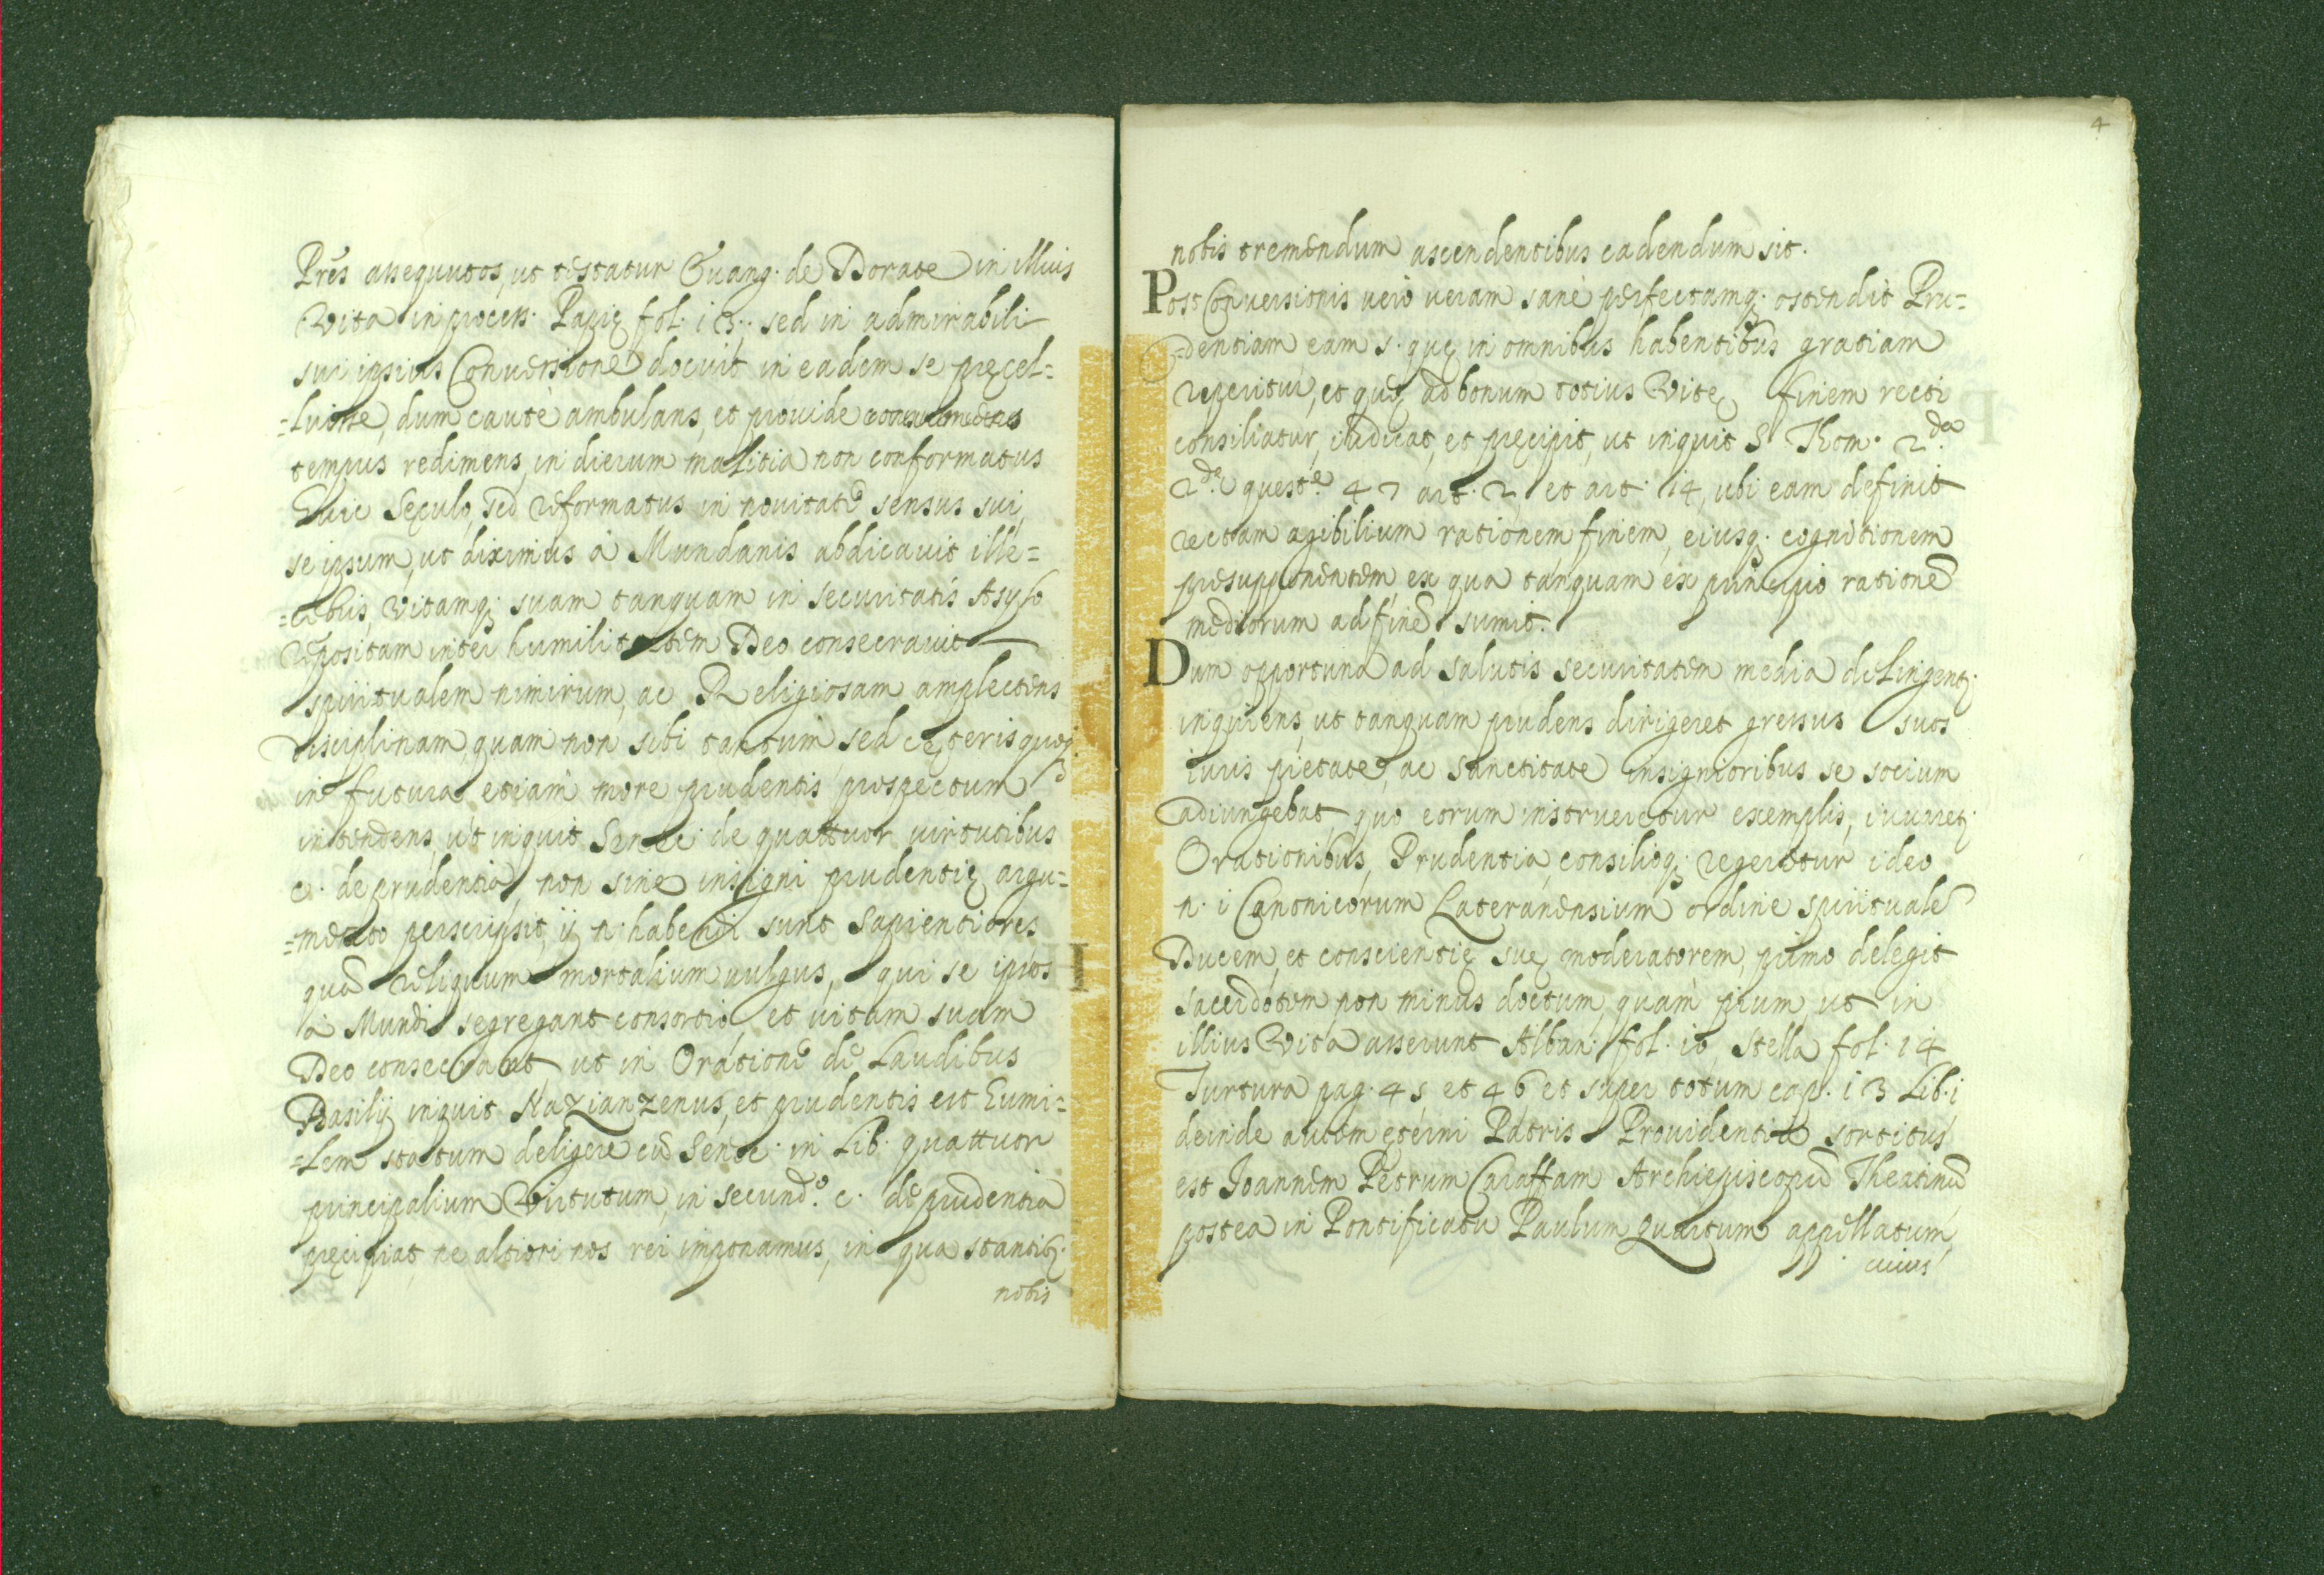 Prēs assequutos, ut testatur Evang. de Dorate in illius
Vita in process. Papię fol. 13. sed in admirabili
sui ipsius Conversione docuit in eadem se pręcel=
=luisse, dum cautè ambulans, et provide
tempus redimens, in dierum malitia non conformatus
huic Sęculo, sed reformatus in novitate sensus sui,
se ipsum, ut diximus à Mundanis abdicavit ille=
=cebris, Vitamq; suam tanquam in securitatis Asylo
repositam inter humilitatem Deo consecravit
spiritualem nimirum, ac Religiosam amplectens
disciplinam, quam non sibi tantum sed cęteris quoq;
in futura etiam more prudentis prospectum
intendens, ut inquit Senec. de quattuor virtutibus
c. de prudentia, non sine insigni prudentię argu=
=mento perscripsit, ij n. habendi sunt Sapientiores
quā reliquum mortalium vulgus, qui se ipsos
à Mundi segregant consortio et vitam suam
Deo consecrant ut in Oratione de Laudibus
Basilij inquit Nazianzenus, et prudentis est humi=
=lem statum deligere cū Senec. in Lib. quattuor
principalium Virtutum, in secundo. c. de prudentia
pręcipiat, ne altiori nos rei imponamus, in qua stantib;
nobis
4
nobis tremendum ascendentibus cadendum sit.
Post Conversionis verò veram sanè perfectamq; ostendit Pru=
=dentiam eam s. quę in omnibus habentibus gratiam
reperitur, et quę ad bonum totius Vitę finem recti
consiliatur, iudicat, et pręcipit, ut inquit S. Thom. 2.da
2.dę quest.e 47 art. 2, et art. 14, ubi eam definit
rectam agibilium rationem finem, eiusq; cognitionem
presupponentem, ex qua tanquam ex principio rationē
mediorum ad finē sumit.
Dum opportuna ad salutis securitatem media dilingent;
inquirens, ut tanquam prudens dirigeret gressus suos
iuris pietate, ac sanctitate insignioribus se socium
adiungebat, quò eorum instrueretur exemplis, iuvaret;
Orationibus, Prudentia, consilioq; regeretur ideo
n. i Canonicorum Lateranensium ordine spiritualē
Ducem, et conscientię suę moderatorem, primo delegit
sacerdotem non minus doctum, quàm pium, ut in
illius Vita asserunt Alban. fol. 10, Stella fol. 14
Turtura pag. 45 et 46 et super totum cap. 13 Lib. i
deinde autem ęterni Patris Providentia sortitus
est Joannem Petrum Caraffam Archiepiscopū Theatinū
postea in Pontificatu Paulum Quartum appellatum,
cuius